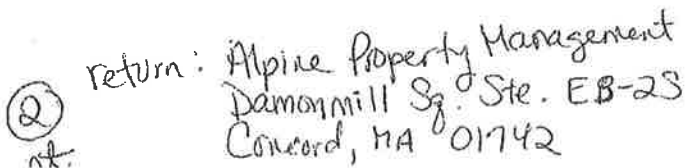 ② return: Alpine Property Management
Damonmill Sq. Ste. EB-2S
Concord, MA 01742